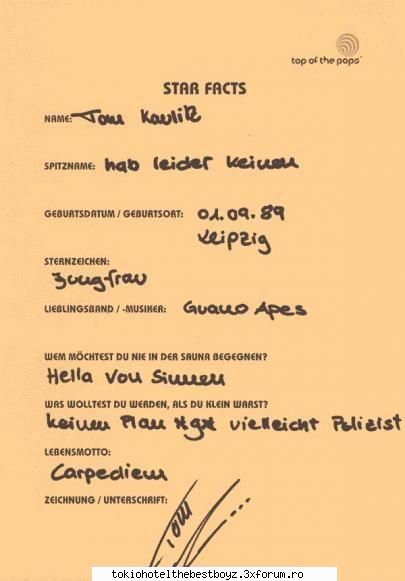 top of the pops™
STAR FACTS
NAME: Tom Kaulitz
SPITZNAME: hab leider keinen
GEBURTSDATUM / GEBURTSORT: 01.09.89
Leipzig
STERNZEICHEN:
Jungfrau
LIEBLINGSBAND / -MUSIKER: Guano Apes
WEM MÖCHTEST DU NIE IN DER SAUNA BEGEGNEN?
Hella Von Sinnen
WAS WOLLTEST DU WERDEN, ALS DU KLEIN WARST?
keinen Plan vielleicht Polizist
LEBENSMOTTO:
Carpediem
ZEICHNUNG / UNTERSCHRIFT:
Tom
tokiohotelthebestboyz.3xforum.ro